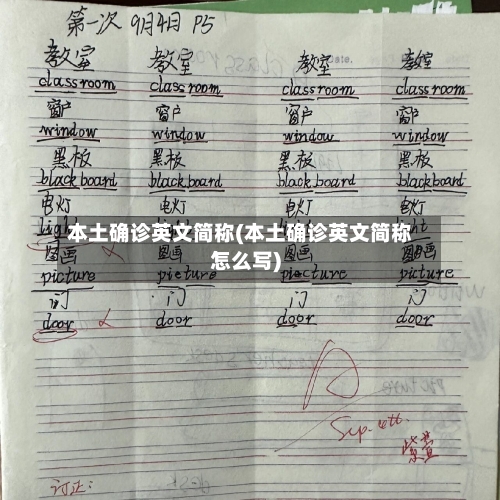 第一次 9月4日 P5
教室 教室 教室 教室
classroom classroom classroom classroom
窗户 窗户 窗户 窗户
window window window window
黑板 黑板 黑板 黑板
blackboard blackboard blackboard blackboard
电灯 电灯 电灯 电灯
light
本土确诊英文简称(本土确诊英文简称
怎么写)
图画 图画 图画 图画
picture picture piecture picture
门 门 门 门
door door door door
A
订正: